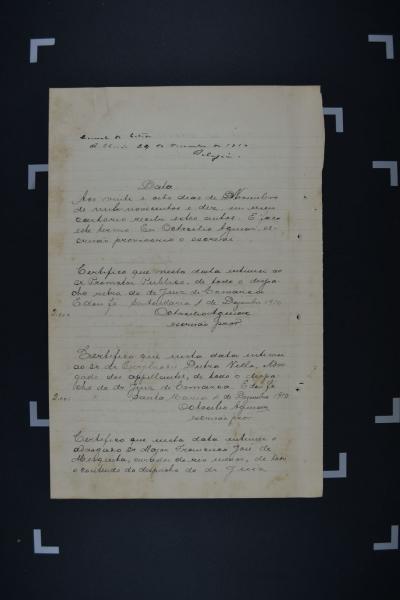 S. Maria 29 de Novembro de 1910
Data
Aos vinte e oito dias de Novembro
de mil novecentos e dez, em meu
cartorio recebi estes autos. E faço
este termo. Eu Octacilio Aguiar, es-
crivão provisorio o escrevi.
Certifico que nesta data intimei ao
sr. Promotor Publico, de todo o despa-
cho retro do dr Juiz de Comarca
E dou fé. Santa Maria 1 de Dezembro 1910
Octacilio Aguiar
escrivão prov
Certifico que nesta data intimei
ao sr. dr. Dutra Villa, Advo-
gado dos appellantes, de todo o despa-
cho do dr Juiz de Comarca. E dou fé
2000 Santa Maria 1 de Dezembro 1910
Octacilio Aguiar
escrivão prov
Certifico que nesta data intimei o
advogado sr Major Francisco José de
Mesquita, curador do réo menor, de todo
o contendo do despacho do dr Juiz